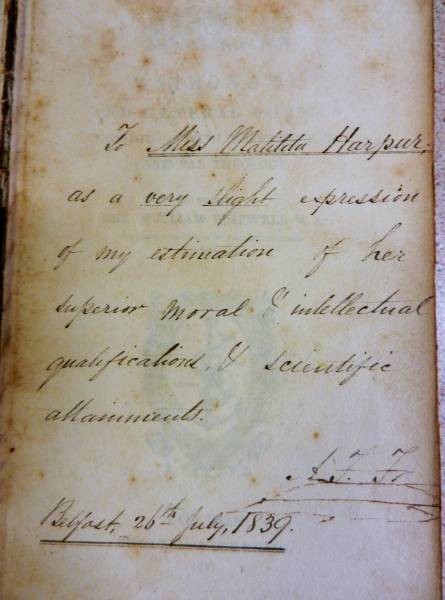 To Miss Matilda Harpur,
as a very slight expression
of my estimation of her
superior moral & intellectual
qualifications, & scientific
attainments.
Belfast, 26th July, 1839.